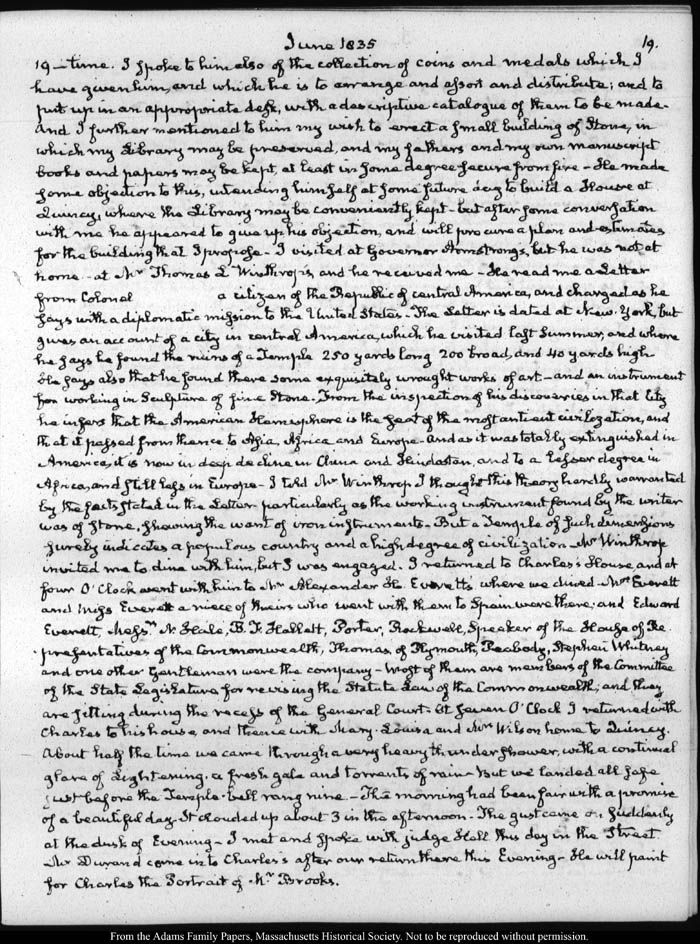 June 1835
19.
19 - time. I spoke to him also of the collection of coins and medals which I
have given him, and which he is to arrange and assort and distribute; and to
put up in an appropriate desk, with a descriptive catalogue of them to be made.
And I further mentioned to him my wish to erect a small building of Stone, in
which my Library may be preserved, and my fathers and my own manuscript
books and papers may be kept, at least in some degree secure from fire - He made
some objection to this, intending himself at some future day to build a House at
Quincy, where the Library may be conveniently kept - but after some conversation
with me he appeared to give up his objection, and will procure a plan and estimates
for the building that I propose - I visited at Governor Armstrong's, but he was not at
home - at Mr Thomas L Winthrop's, and he received me - He read me a Letter
from Colonel a citizen of the Republic of central America, and charged as he
says with a diplomatic mission to the United States - The Letter is dated at New York, but
gives an account of a city in central America, which he visited last Summer, and where
he says he found the ruins of a Temple 250 yards long 200 broad, and 40 yards high
He says also that he found there some exquisitely wrought works of art - and an instrument
for working in Sculpture of fine Stone. From the inspection of his discoveries in that City
he infers that the American Hemisphere is the seat of the most antient civilization, and
that it passed from thence to Asia, Africa and Europe - and as it was totally extinguished in
America, it is now in deep decline in China and Hindostan, and to a lesser degree in
Africa, and still less in Europe - I told Mr Winthrop I thought this theory hardly warranted
by the facts stated in the Letter particularly as the working instrument found by the writer
was of stone, showing the want of iron instruments - But a Temple of such dimensions
surely indicates a populous country and a high degree of civilization - Mr Winthrop
invited me to dine with him, but I was engaged. I returned to Charles's House, and at
four O'Clock went with him to Mr Alexander H. Everett's where we dined. Mrs Everett
and Miss Everett a niece of theirs who went with them to Spain were there; and Edward
Everett, Messrs N. Hale, B. F. Hallett, Porter, Rockwell, Speaker of the House of Re-
presentatives of the Commonwealth, Thomas of Plymouth, Peabody, Stephen Whitney
and one other Gentleman were the company - Most of them are members of the Committee
of the State Legislature for revising the Statute Law of the Commonwealth; and they
are sitting during the recess of the General Court. At seven O'Clock I returned with
Charles to his house, and thence with Mary-Louisa and Mrs Wilson home to Quincy.
About half the time we came through a very heavy thunder shower, with a continual
glare of Lightening, a fresh gale and torrents of rain - But we landed all safe
just before the Temple-bell rang nine - The morning had been fair with a promise
of a beautiful day. It clouded up about 3 in the afternoon - The gust came on suddenly
at the dusk of Evening - I met and spoke with judge Hall this day in the Street
Mr Durand came in to Charles's after our return there this Evening - He will paint
for Charles the Portrait of Mr Brooks.
From the Adams Family Papers, Massachusetts Historical Society. Not to be reproduced without permission.